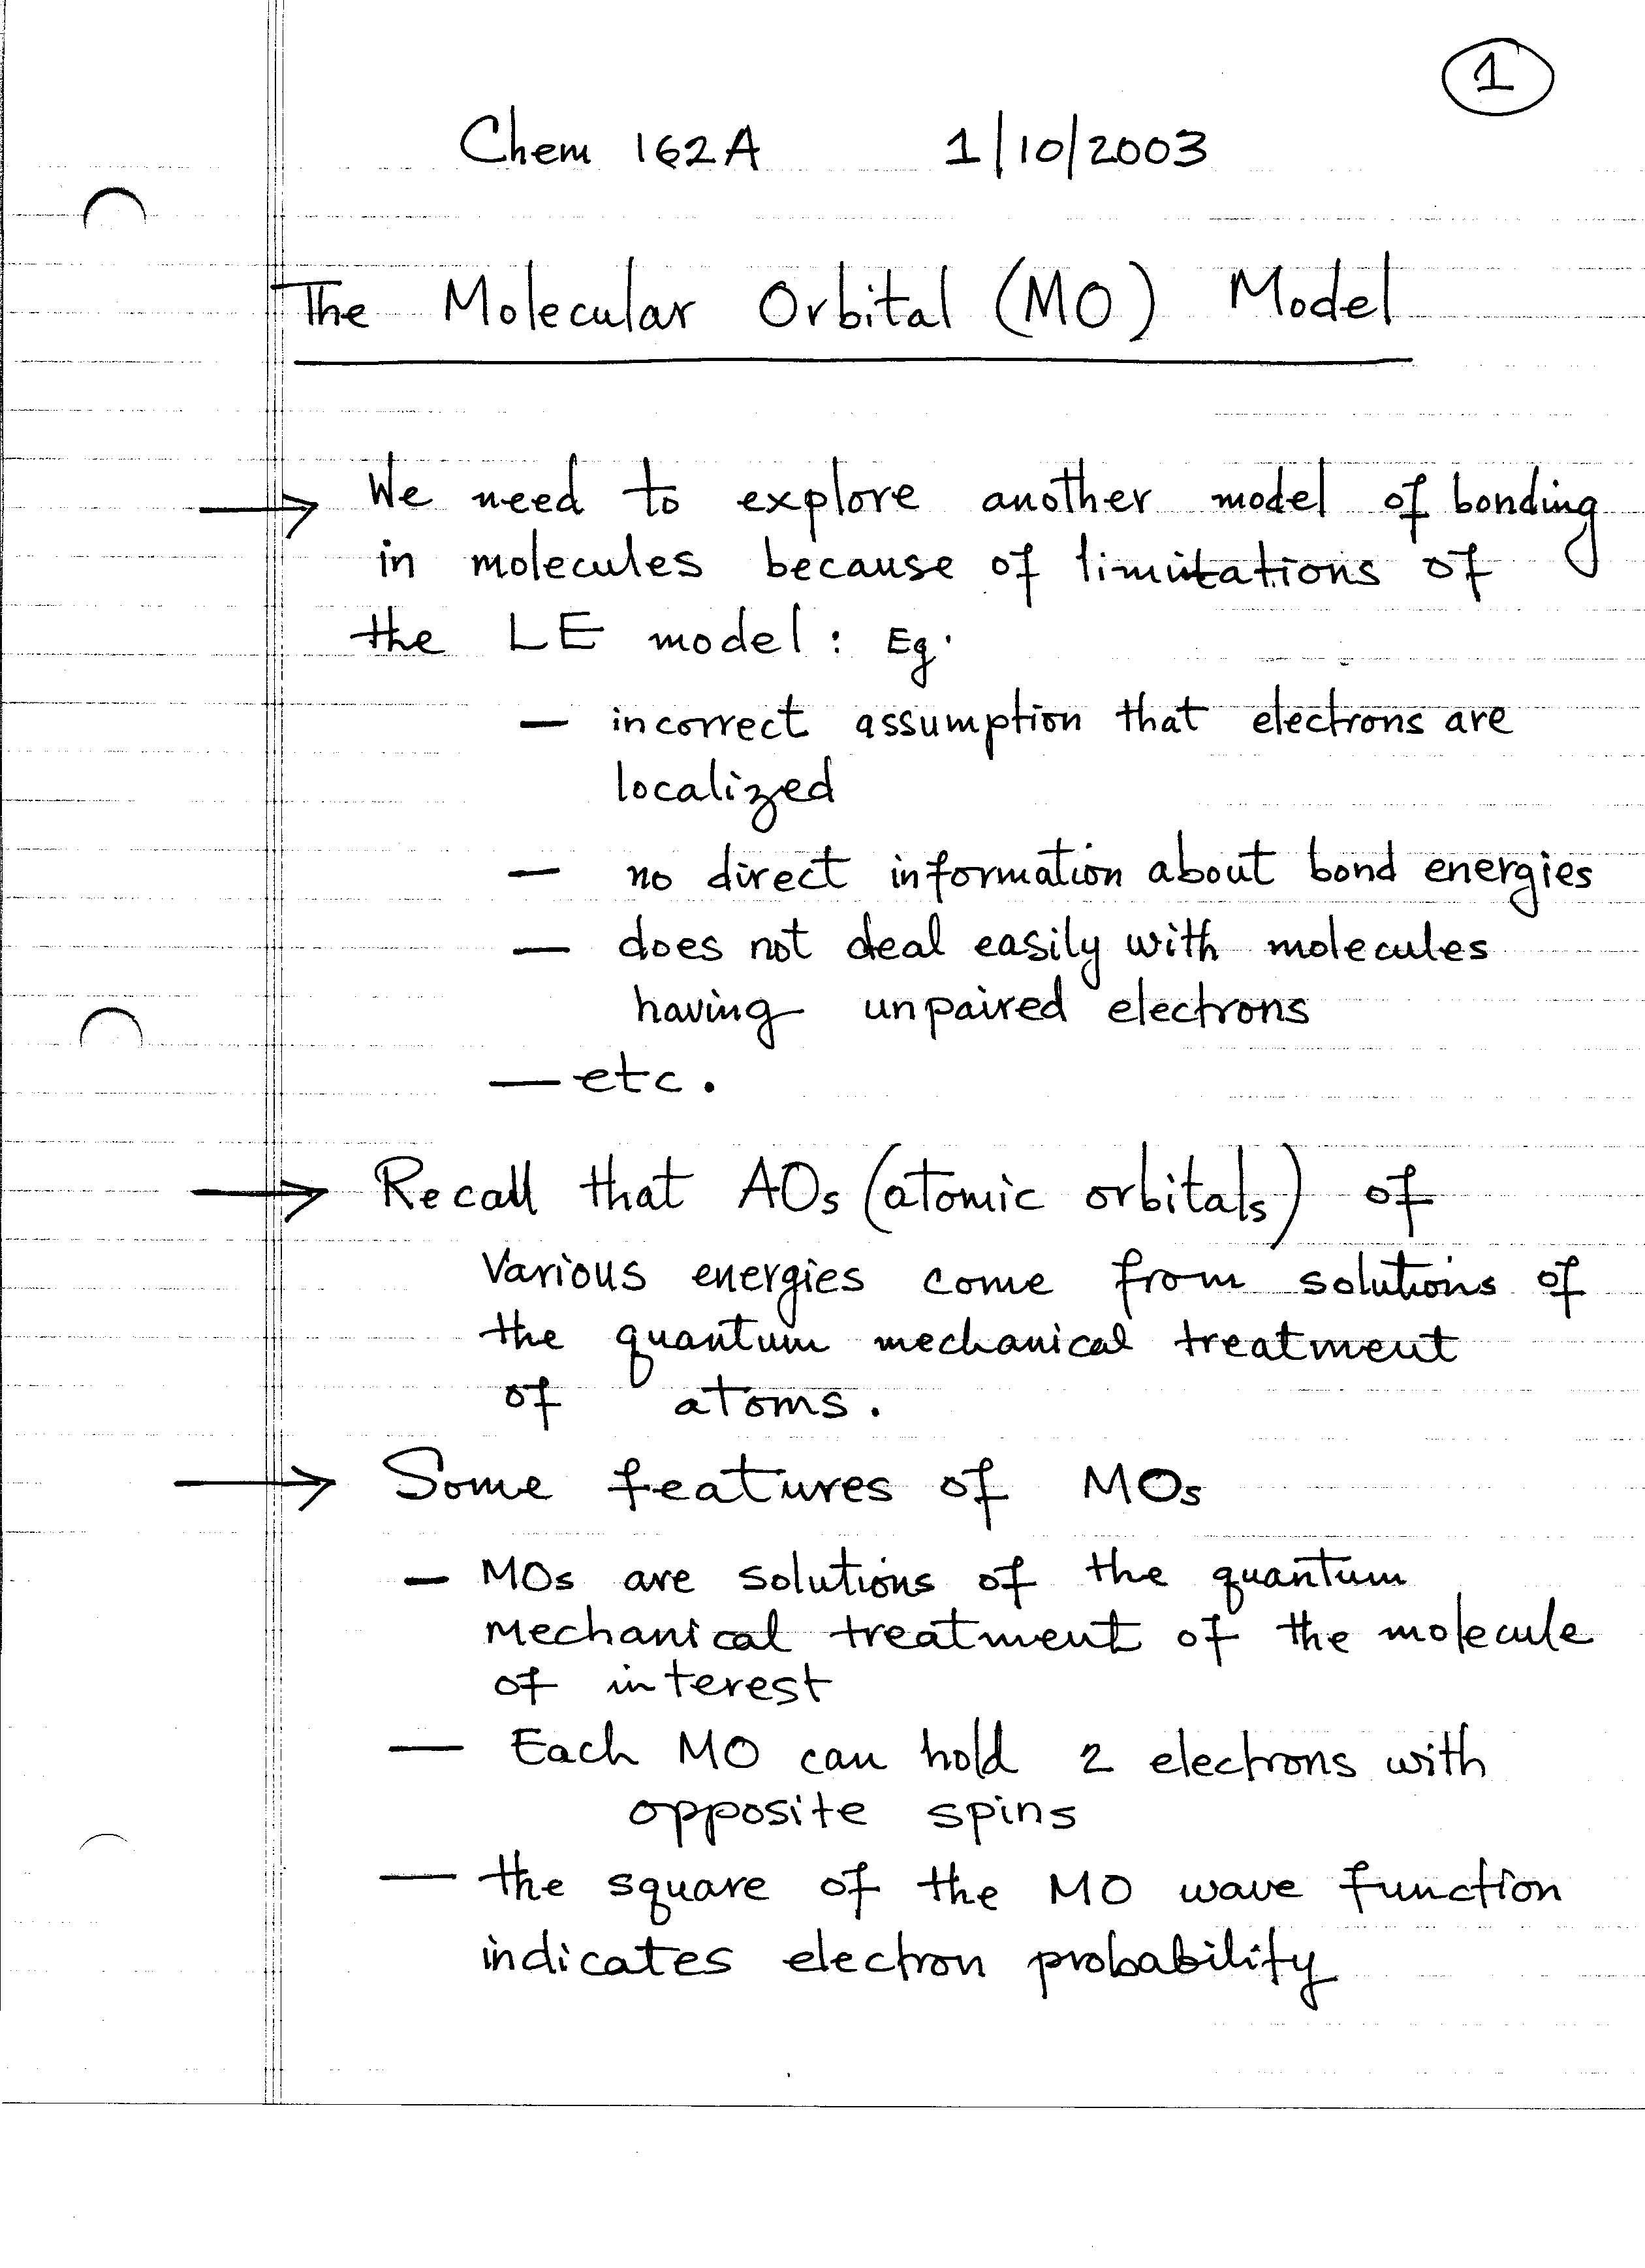 1
Chem 162A 1/10/2003
The Molecular Orbital (MO) Model
→ We need to explore another model of bonding
in molecules because of limitations of
the LE model: Eg.
— incorrect assumption that electrons are
localized
— no direct information about bond energies
— does not deal easily with molecules
having unpaired electrons
— etc.
→ Recall that AOs (atomic orbitals) of
Various energies come from solutions of
the quantum mechanical treatment
of atoms.
→ Some features of MOs
— MOs are solutions of the quantum
mechanical treatment of the molecule
of interest
— Each MO can hold 2 electrons with
opposite spins
— the square of the MO wave function
indicates electron probability